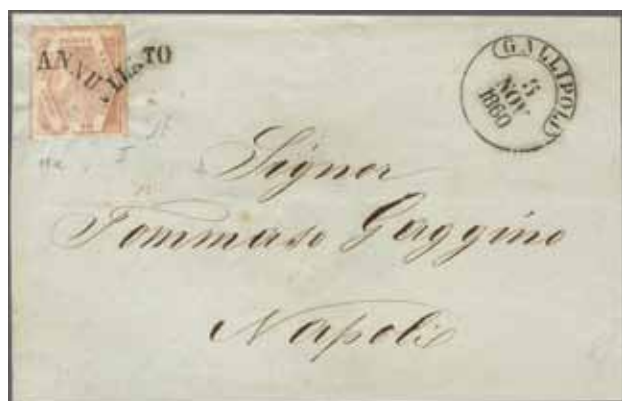 ANNULLATO
GALLIPOLI
5
NOV
1860
Signor
Tommaso Gaggino
Napoli